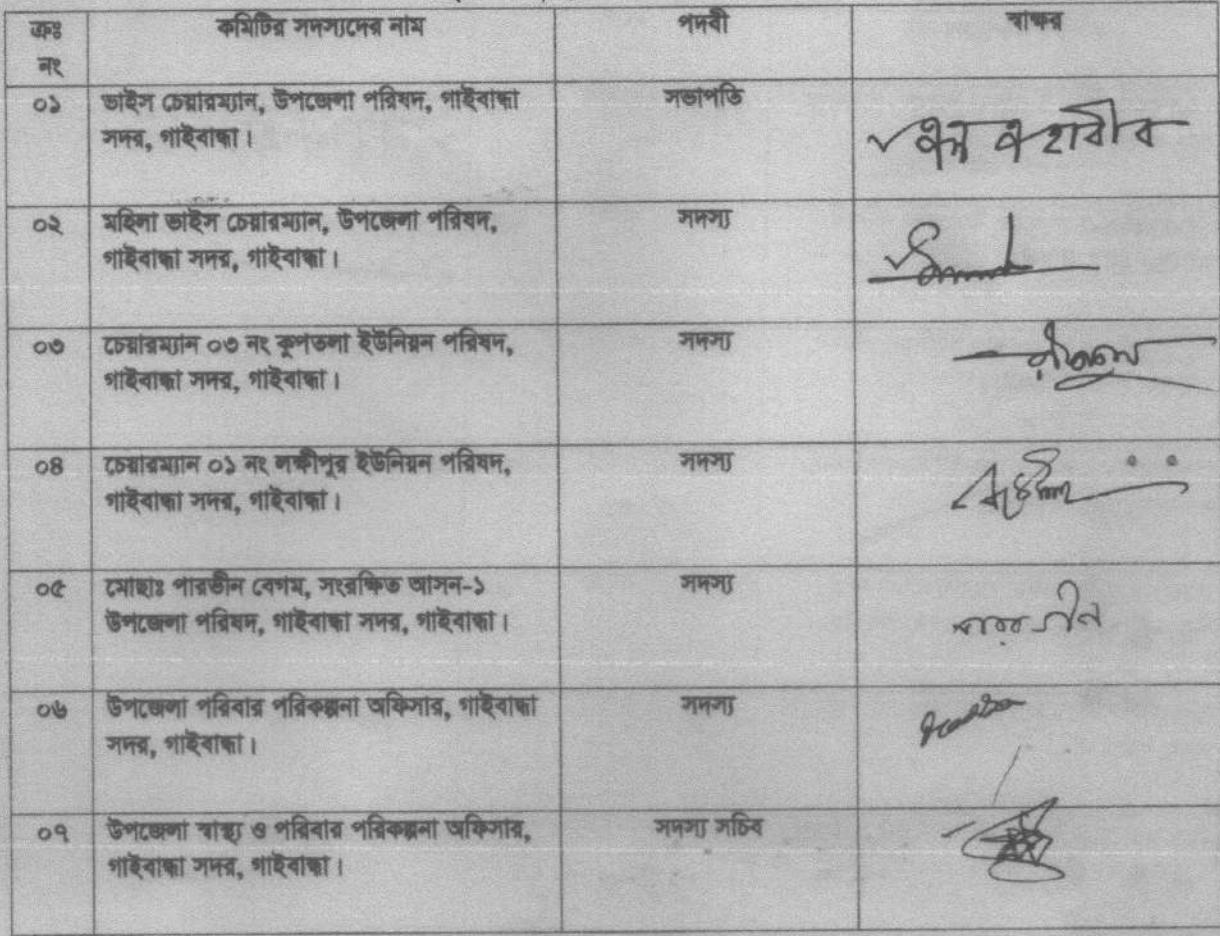 ক্রঃ নং কমিটির সদস্যদের নাম পদবী স্বাক্ষর
০১ ভাইস চেয়ারম্যান, উপজেলা পরিষদ, গাইবান্ধা সভাপতি
সদর, গাইবান্ধা।
০২ মহিলা ভাইস চেয়ারম্যান, উপজেলা পরিষদ, সদস্য
গাইবান্ধা সদর, গাইবান্ধা।
০৩ চেয়ারম্যান ০৩ নং কুপতলা ইউনিয়ন পরিষদ, সদস্য
গাইবান্ধা সদর, গাইবান্ধা।
০৪ চেয়ারম্যান ০১ নং লক্ষীপুর ইউনিয়ন পরিষদ, সদস্য
গাইবান্ধা সদর, গাইবান্ধা।
০৫ মোছাঃ পারভীন বেগম, সংরক্ষিত আসন-১ সদস্য
উপজেলা পরিষদ, গাইবান্ধা সদর, গাইবান্ধা।
পারভীন
০৬ উপজেলা পরিবার পরিকল্পনা অফিসার, গাইবান্ধা সদস্য
সদর, গাইবান্ধা।
০৭ উপজেলা স্বাস্থ্য ও পরিবার পরিকল্পনা অফিসার, সদস্য সচিব
গাইবান্ধা সদর, গাইবান্ধা।